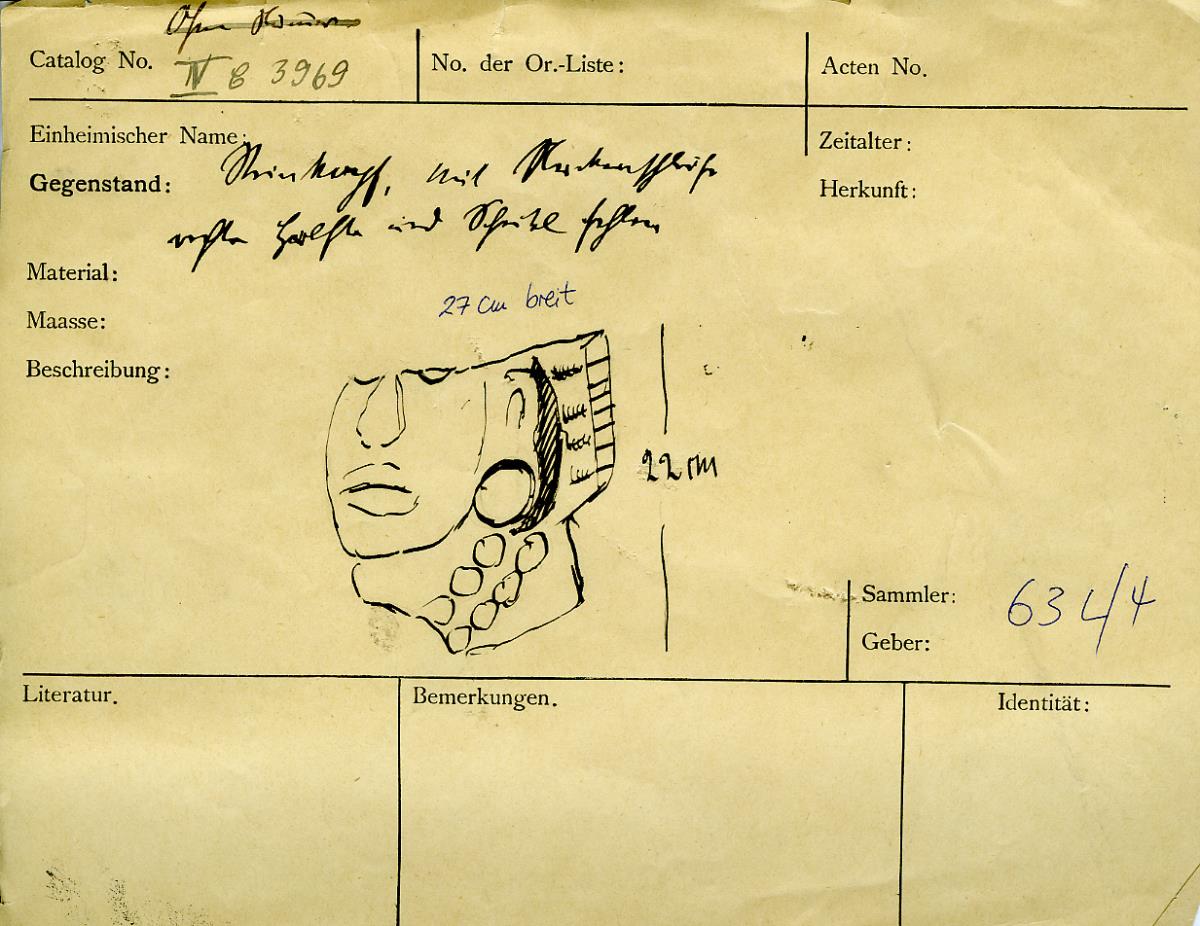 Ohne Nummer
Catalog No. IV C 3969
No. der Or.-Liste:
Acten No.
Einheimischer Name:
Zeitalter:
Gegenstand: Steinkopf, mit
Herkunft:
rechte Hälfte und Scheitel fehlen
Material:
27 cm breit
Maasse:
Beschreibung:
22 cm
Sammler:
634/4
Geber:
Literatur.
Bemerkungen.
Identität: